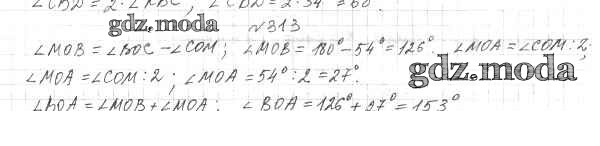 ∠CBD = 2·∠ABC; ∠CBD = 2·34° = 68°
gdz.moda №313
∠MOB = ∠BOC - ∠COM; ∠MOB = 180° - 54° = 126° ∠MOA = ∠COM:2;
∠MOA = ∠COM:2; ∠MOA = 54°:2 = 27°.
gdz.moda
∠BOA = ∠MOB + ∠MOA: ∠BOA = 126° + 27° = 153°